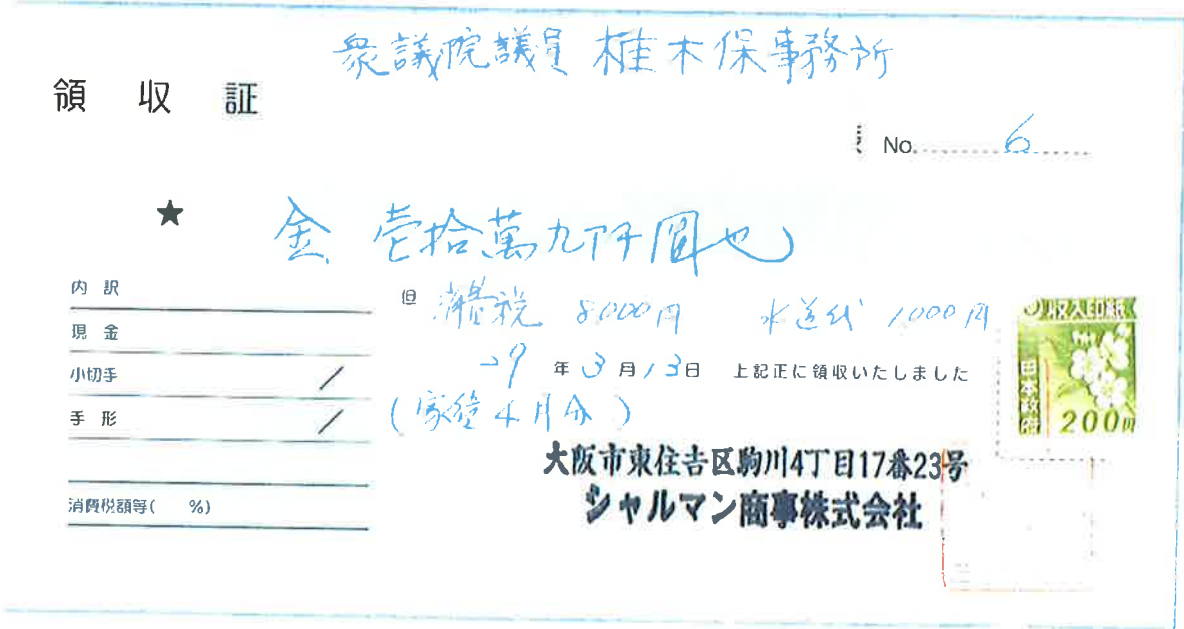 衆議院議員 椎木保事務所
領収証
No. 6
★ 金 壱拾萬九阡圓也
内訳
現金
小切手 /
手形 /
消費税額等( %)
但 消費税 8000円 水道代 1000円
29年3月13日 上記正に領収いたしました
(家賃4月分)
収入印紙
日本政府
200円
大阪市東住吉区駒川4丁目17番23号
シャルマン商事株式会社